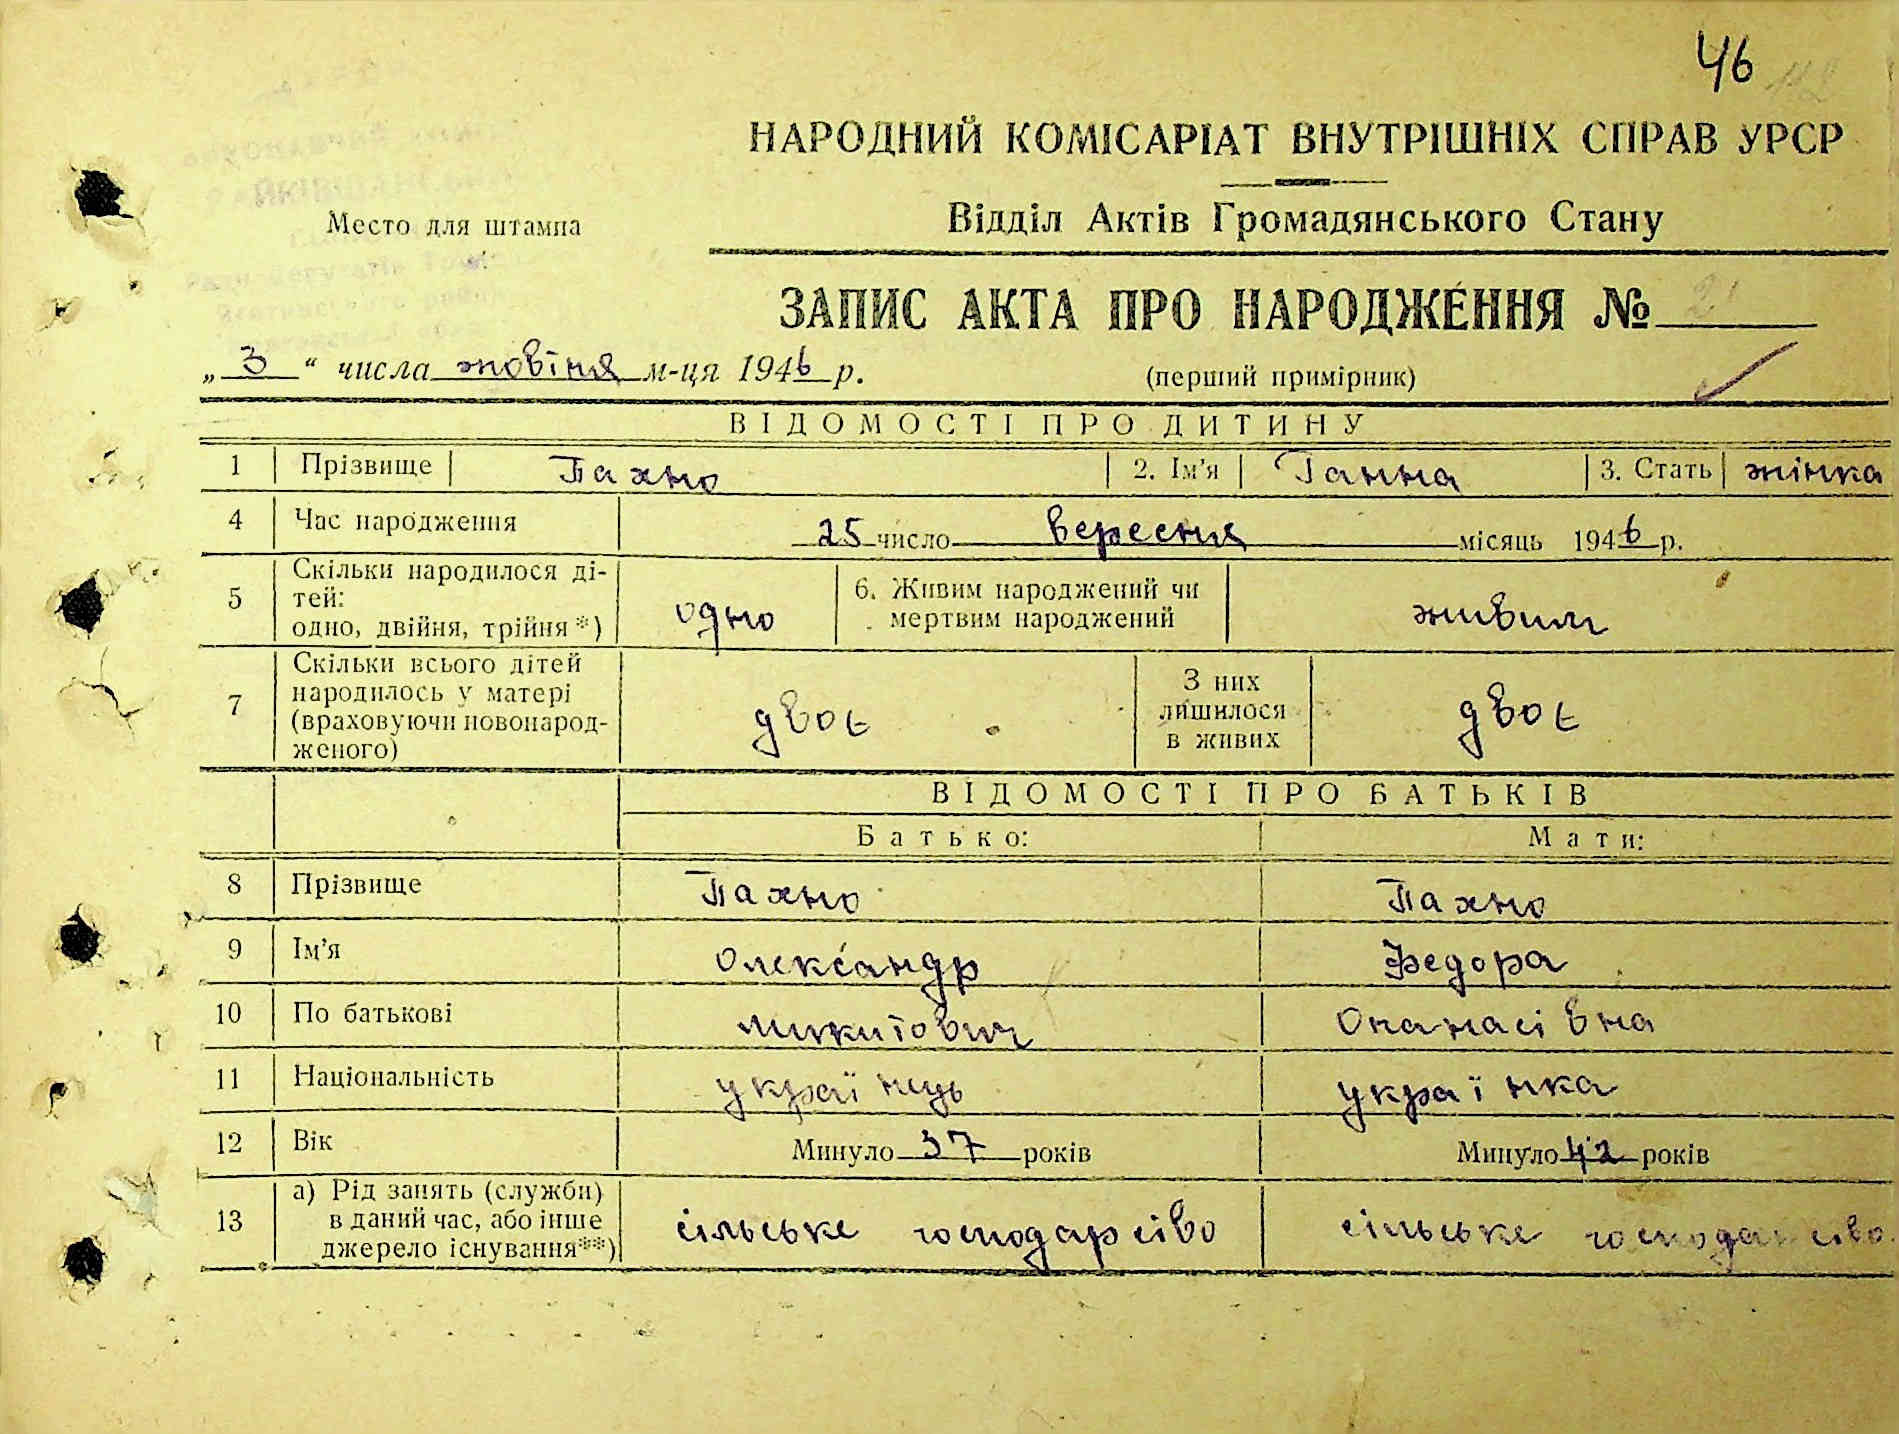 46
НАРОДНИЙ КОМІСАРІАТ ВНУТРІШНІХ СПРАВ УРСР
Место для штампа
Відділ Актів Громадянського Стану
ЗАПИС АКТА ПРО НАРОДЖЕННЯ №
„ 3 “ числа жовтня м-ця 1946 р.
(перший примірник)
ВІДОМОСТІ ПРО ДИТИНУ
1 Прізвище Пахно 2. Ім'я Ганна 3. Стать жінка
4 Час народження 25 число вересня місяць 1946 р.
5 Скільки народилося ді-
тей:
одно, двійня, трійня*) одно 6. Живим народжений чи
мертвим народжений живим
7 Скільки всього дітей
народилось у матері
(враховуючи новонарод-
женого) двоє З них
лишилося
в живих двоє
ВІДОМОСТІ ПРО БАТЬКІВ
Батько: Мати:
8 Прізвище Пахно Пахно
9 Ім'я Олександр Федора
10 По батькові Микитович Опанасівна
11 Національність українець українка
12 Вік Минуло 37 років Минуло 42 років
13 а) Рід занять (служби)
в даний час, або інше
джерело існування**) сільське господарство сільське господарство